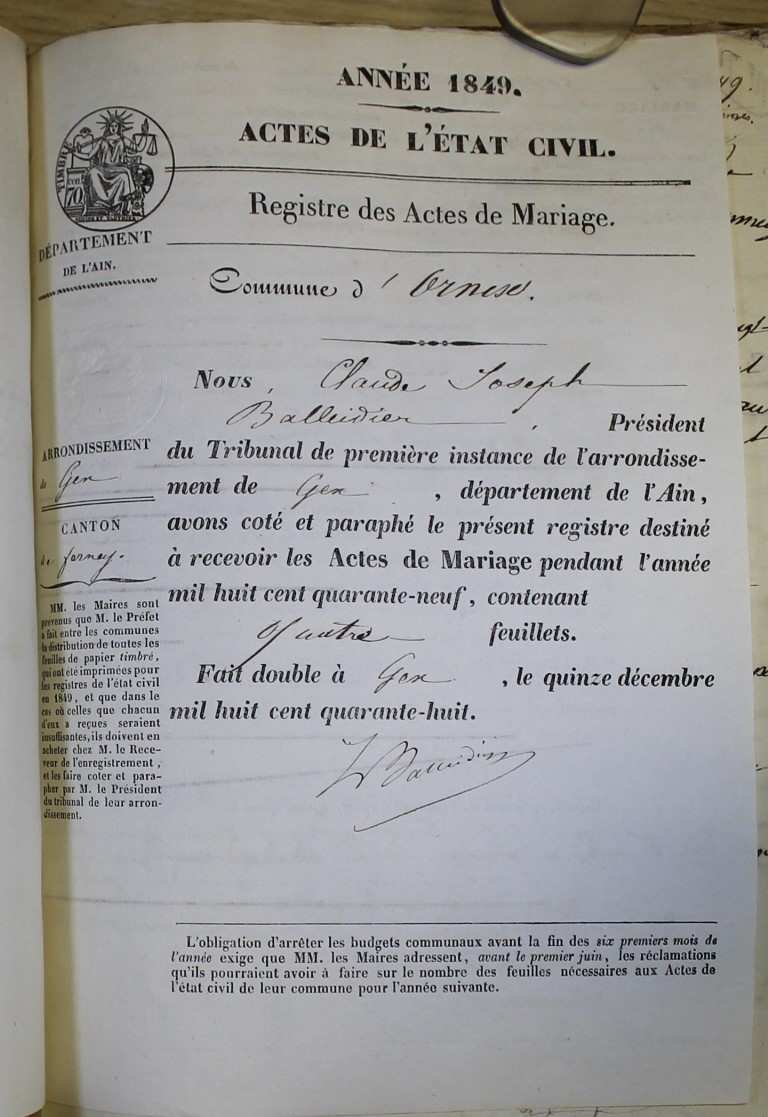 ANNÉE 1849.
ACTES DE L'ÉTAT CIVIL.
TIMBRE
70
DÉPARTEMENT
DE L'AIN.
Registre des Actes de Mariage.
Commune d'Ornex.
Nous, Claude Joseph
Balleidier, Président
du Tribunal de première instance de l'arrondisse-
ment de Gex, département de l'Ain,
avons coté et paraphé le présent registre destiné
à recevoir les Actes de Mariage pendant l'année
mil huit cent quarante-neuf, contenant
Quatre feuillets.
Fait double à Gex, le quinze décembre
mil huit cent quarante-huit.
Balleidier
ARRONDISSEMENT
de Gex
CANTON
de ferney.
MM. les Maires sont
prévenus que M. le Préfet
a fait entre les communes
la distribution de toutes les
feuilles de papier timbré,
qui ont été imprimées pour
les registres de l'état civil
en 1849, et que dans le
cas où celles que chacun
d'eux a reçues seraient
insuffisantes, ils doivent en
acheter chez M. le Rece-
veur de l'enregistrement,
et les faire coter et para-
pher par M. le Président
du tribunal de leur arron-
dissement.
L'obligation d'arrêter les budgets communaux avant la fin des six premiers mois de
l'année exige que MM. les Maires adressent, avant le premier juin, les réclamations
qu'ils pourraient avoir à faire sur le nombre des feuilles nécessaires aux Actes de
l'état civil de leur commune pour l'année suivante.